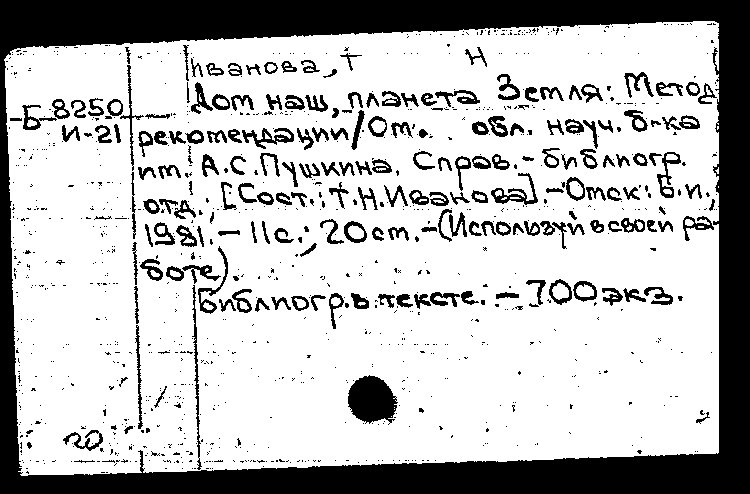 Иванова, Т Н
Дом наш, планета Земля: Метод.
Б 8250
И-21
рекомендации/Ом. обл. науч. б-ка
им. А.С.Пушкина. Справ.-библиогр.
отд.; [Сост.: Т.Н.Иванова].-Омск: Б.и.,
1981.- 11с.; 20см.-(Используй в своей ра-
боте).
Библиогр.в тексте. - 700 экз.
20